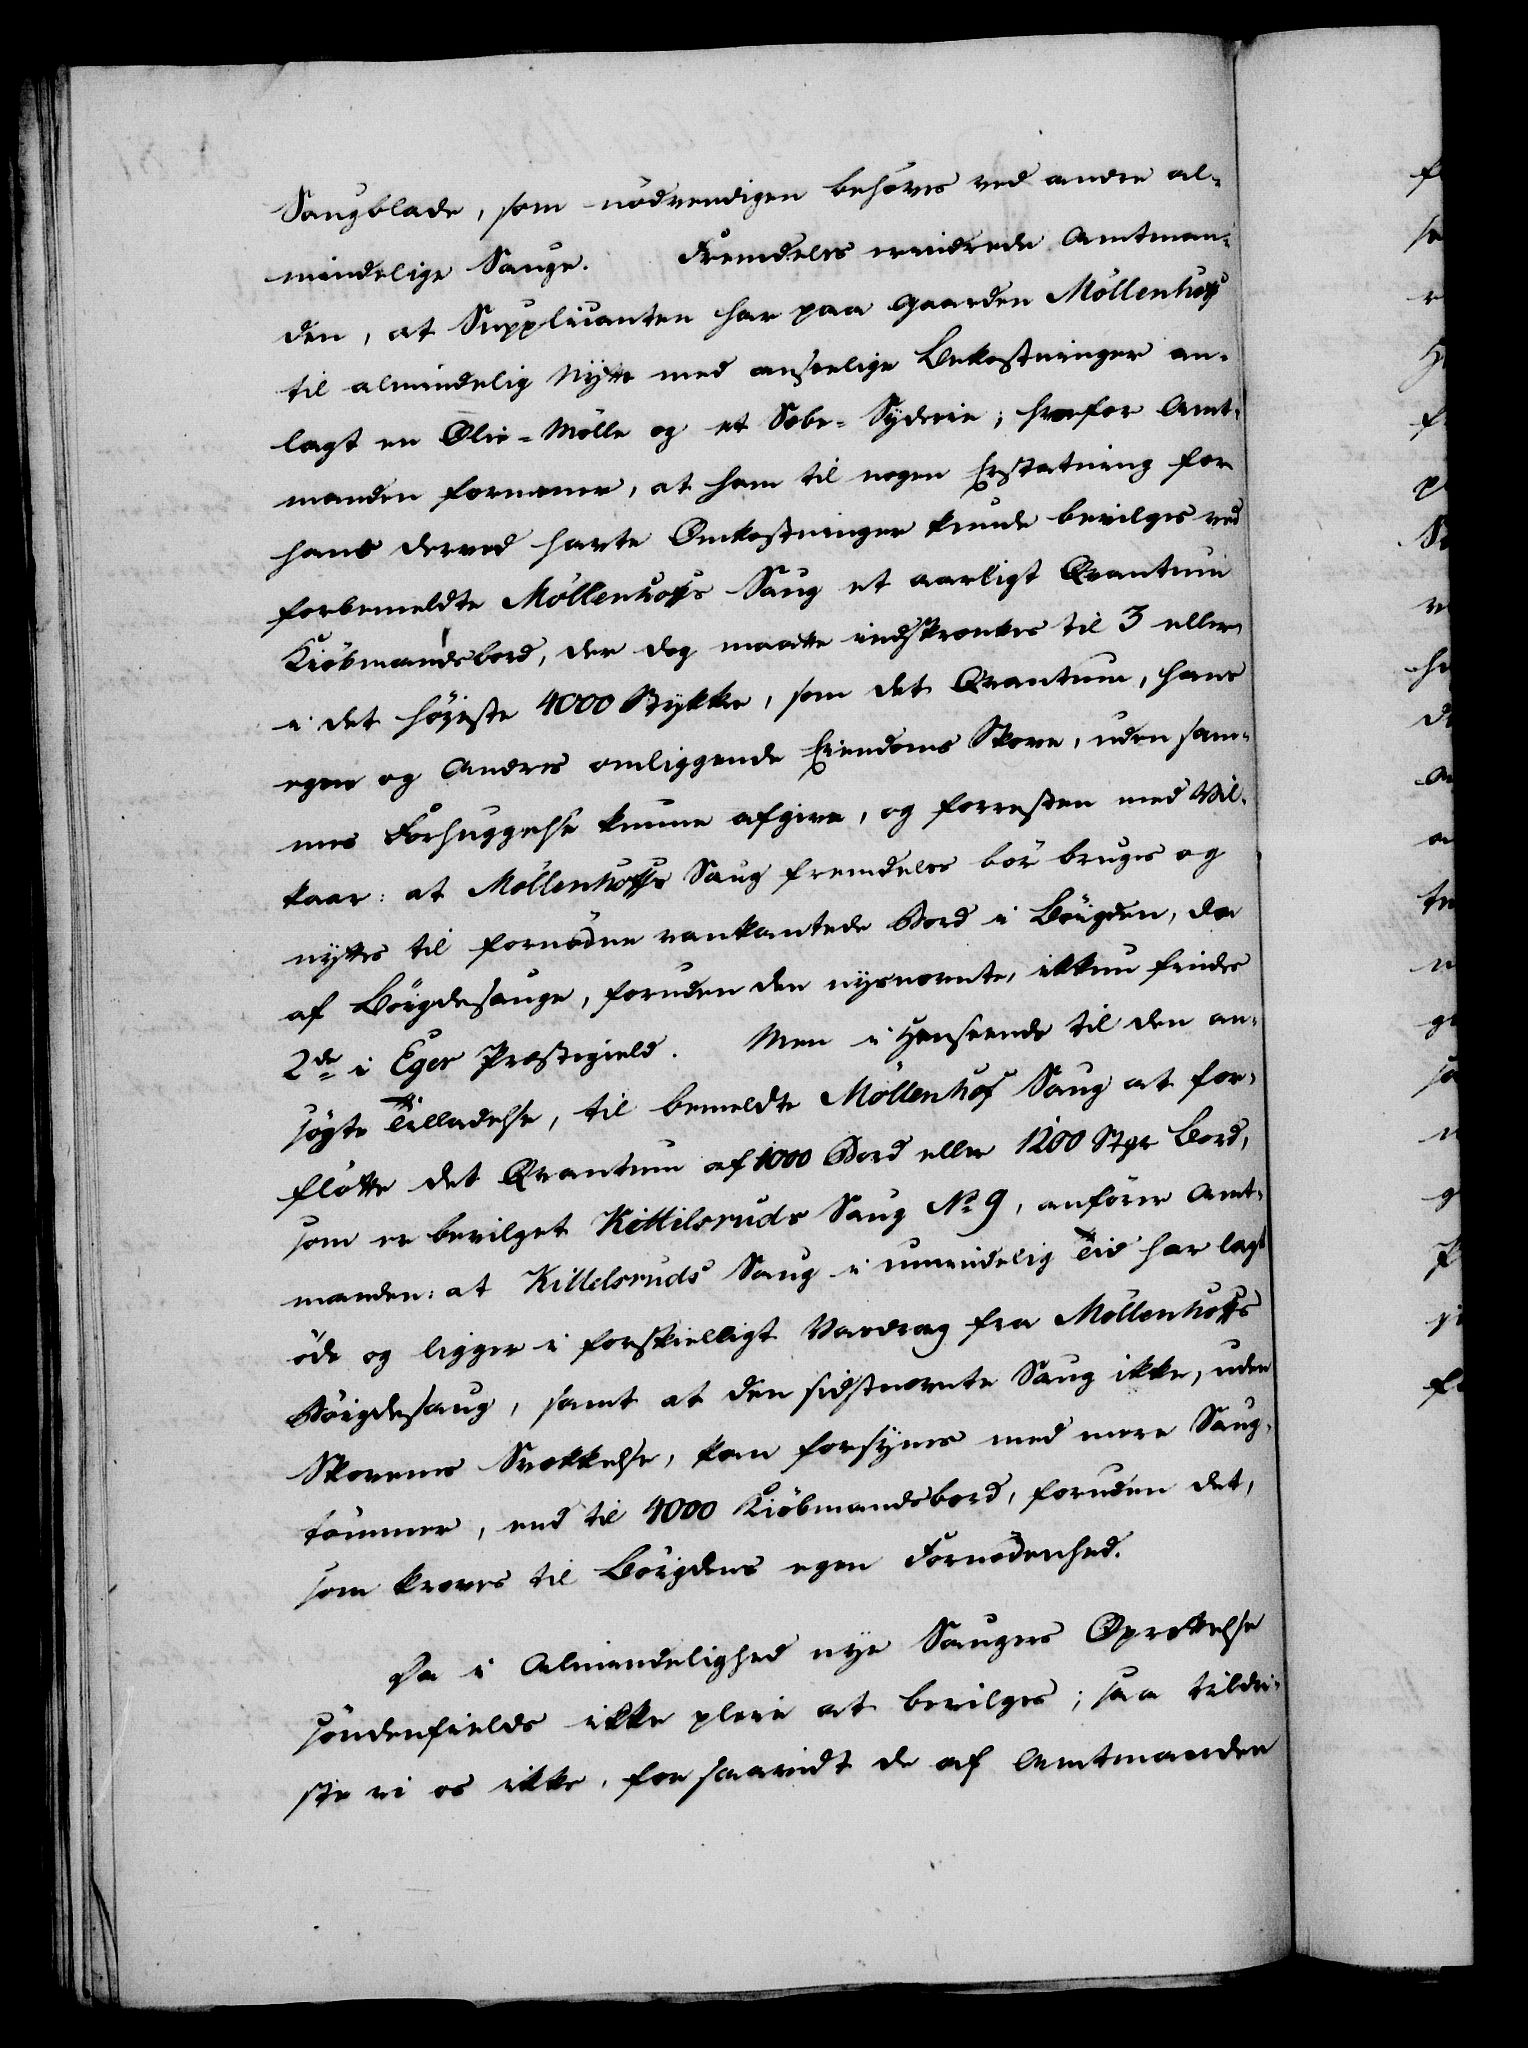 Saugblade, som nödvendigen behöves ved andre al-
mindelige Sauge. Fremdeles erindrede Amtman-
den, at Supplicanten har paa Gaarden Möllenhoff
til almindelig Nytte med anseelige Bekostninger an-
lagt en Olie-Mölle og et Sebe-Syderie; hvorfor Amt-
manden formener, at ham til nogen Erstatning for
hans derved havte Omkostninger kunde bevilges ved
forbemeldte Möllenhoffs Saug et aarligt Qvantum
Kiöbmandsbord, der dog maatte indskrænkes til 3 eller
i det höyeste 4000 Stykker, som det Qvantum, hans
egne og Andres omliggende Eiendoms Skove, uden sam-
mes Forhuggelse kunne afgive, og forresten med Vil-
kaar: at Möllenhoffs Saug fremdeles bör bruges og
nyttes til fornödne vankantede Bord i Böigden, da
af Böigdesauge, foruden den nysnævnte, ikkun findes
2de i Eger Præstegield. Men i Henseende til den an-
søgte Tilladelse, til bemeldte Möllenhof Saug at for-
flötte det Qvantum af 1000 Bord eller 1200 Stkr Bord,
som er bevilget Kittilsruds Saug No 9, anförer Amt-
manden: at Kittelsruds Saug i umindelig Tid har lagt
öde og ligger i forskielligt Vasdrag fra Möllenhoffs
Böigdesaug, samt at den sidstnævnte Saug ikke, uden
Skovenes Svækkelse, kan forsynes med mere Saug-
tömmer, end til 4000 Kiöbmandsbord, foruden det,
som kræves til Böigdens egen Fornödenhed.
Da i Almindelighed nye Sauges Oprettelse
söndenfields ikke pleie at bevilges; saa tildri-
ste vi os ikke, for saavidt de af Amtmanden